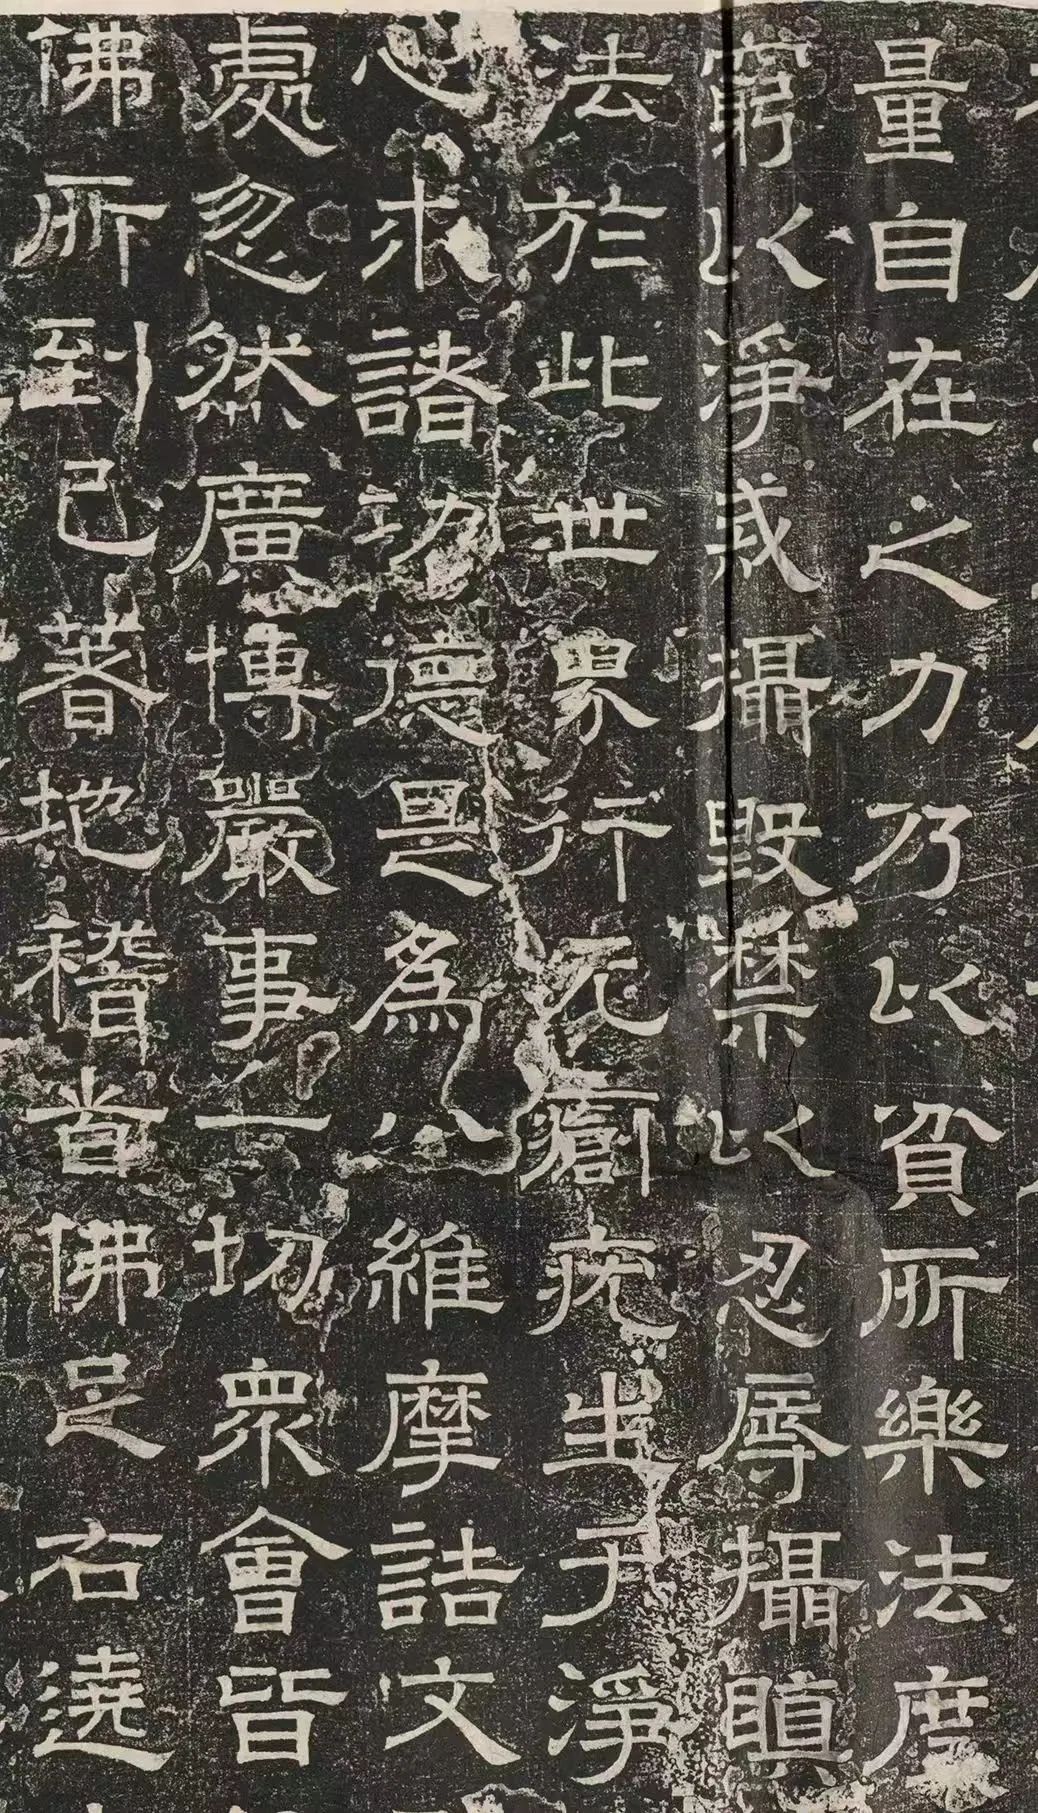 量自在之力乃以貧所樂法度
窮以淨戒攝毀禁以忍辱攝瞋
法於此世界行无瘡疣生于淨
心求諸功德是為八維摩詰文
處忽然廣博嚴事一切衆會皆
佛所到已著地稽首佛足右遶